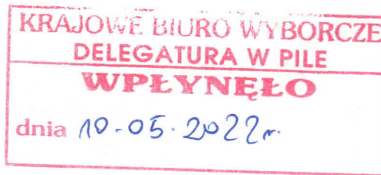 KRAJOWE BIURO WYBORCZE
DELEGATURA W PILE
WPŁYNĘŁO
dnia 10-05-2022r.